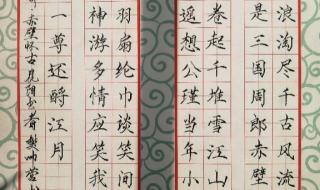 浪淘尽千古风流
是三国周郎赤壁
卷起千堆雪江山
遥想公瑾当年小
羽扇纶巾谈笑间
神游多情座笑我
一尊还酹江月
赤壁怀古